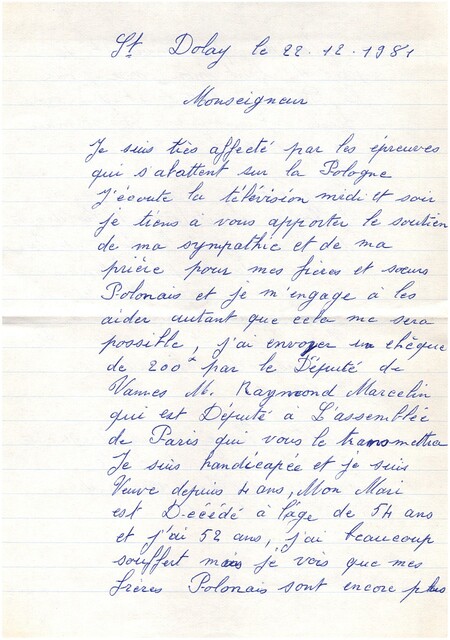 St Dolay le 22.12.1981
Monseigneur
Je suis très affecté par les épreuves
qui s'abattent sur la Pologne
J'écoute la télévision midi et soir
je tiens à vous apporter le soutien
de ma sympathie et de ma
prière pour mes frères et sœurs
Polonais et je m'engage à les
aider autant que cela me sera
possible, j'ai envoyer un chèque
de 200F par le Député de
Vannes M. Raymond Marcelin
qui est Député à L'assemblée
de Paris qui vous le transmettra
Je suis handicapée et je suis
Veuve depuis 4 ans, Mon Mari
est Décédé à l'âge de 54 ans
et j'ai 52 ans, j'ai beaucoup
souffert mais je vois que mes
frères Polonais sont encore plus